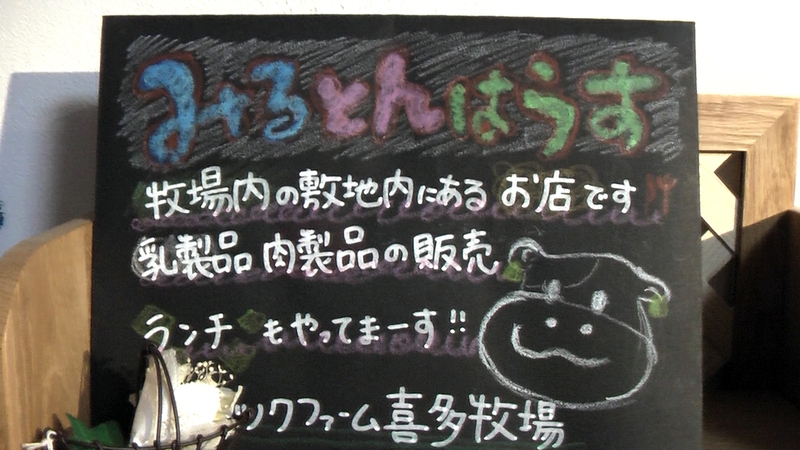 みるとんはうす
牧場内の敷地内にある お店です!!
乳製品 肉製品の販売
ランチ もやってまーす!!
ックファーム喜多牧場